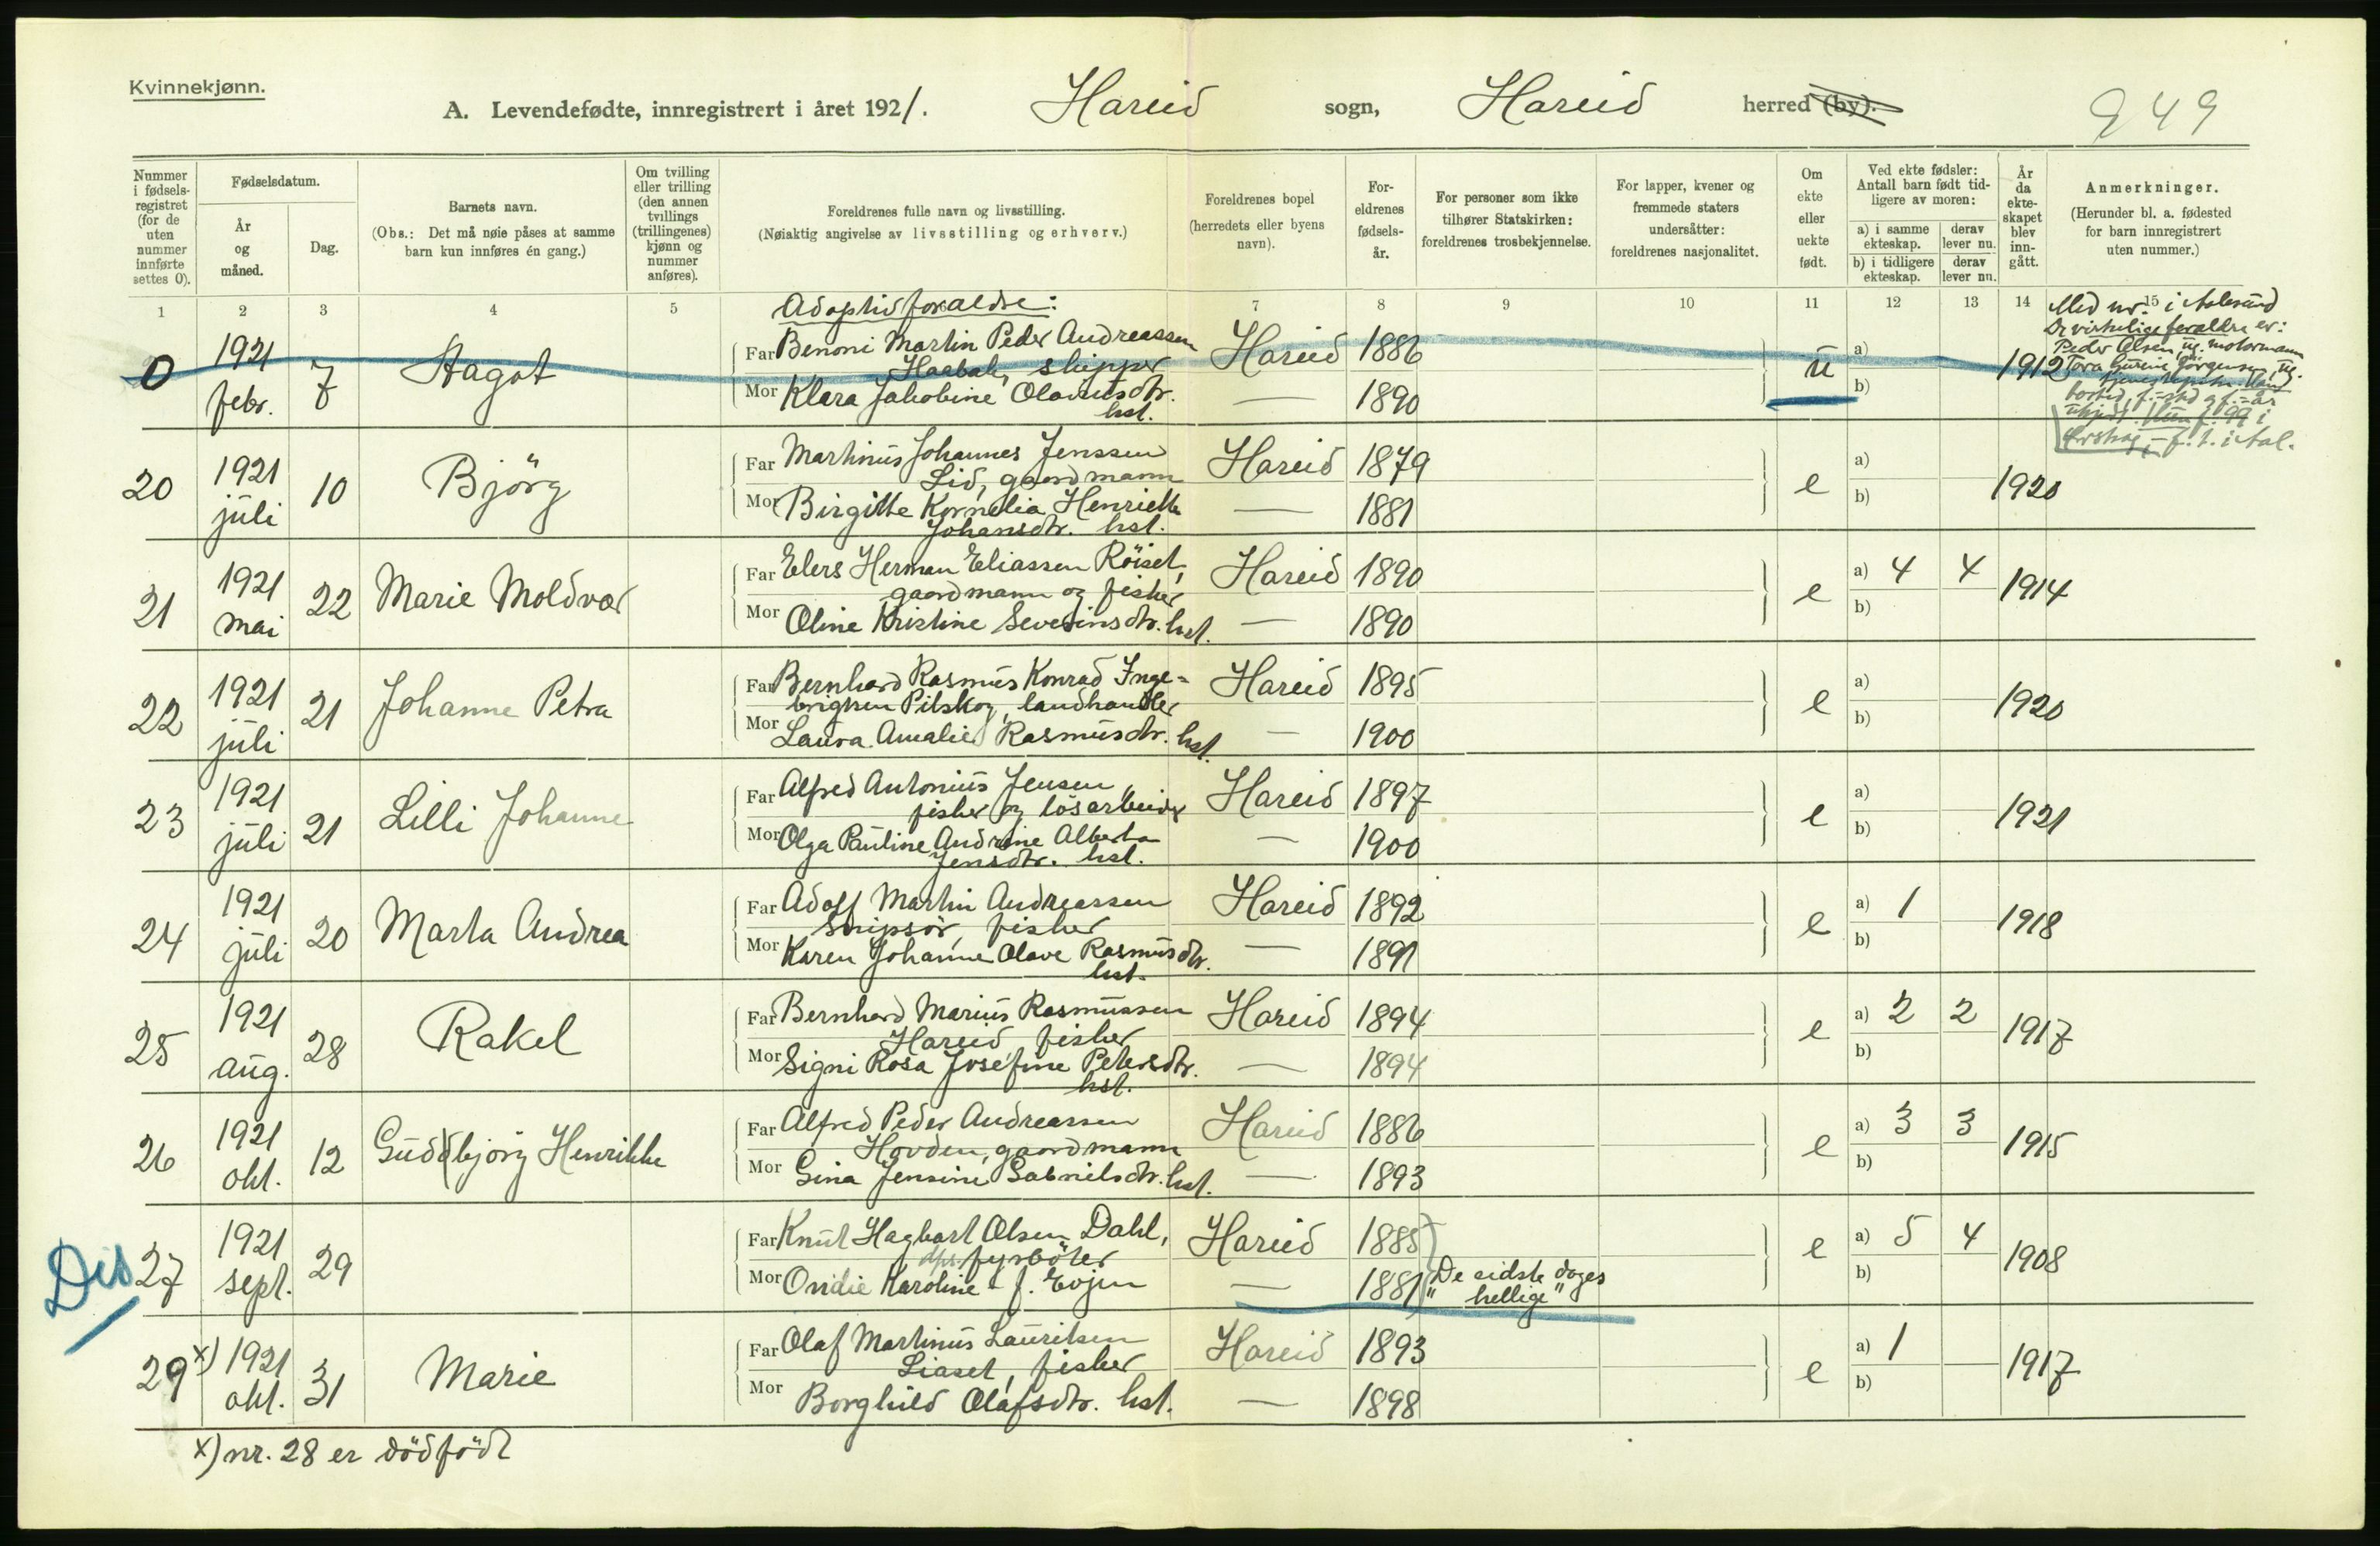 Kvinnekjønn.
A. Levendefødte, innregistrert i året 1921. Hareid sogn, Hareid herred (by).
949
Nummer i fødsels-registret (for de uten nummer innførte settes 0).
Fødselsdatum.
År og måned.
Dag.
Barnets navn.
(Obs.: Det må nøie påses at samme barn kun innføres én gang.)
Om tvilling eller trilling (den annen tvillings (trillingenes) kjønn og nummer anføres).
Foreldrenes fulle navn og livsstilling.
(Nøiaktig angivelse av livsstilling og erhverv.)
Foreldrenes bopel (herredets eller byens navn).
For-eldrenes fødsels-år.
For personer som ikke tilhører Statskirken: foreldrenes trosbekjennelse.
For lapper, kvener og fremmede staters undersåtter: foreldrenes nasjonalitet.
Om ekte eller uekte født.
Ved ekte fødsler: Antall barn født tid-ligere av moren:
a) i samme ekteskap. derav lever nu.
b) i tidligere ekteskap. derav lever nu.
År da ekte-skapet blev inn-gått.
Anmerkninger.
(Herunder bl. a. fødested for barn innregistrert uten nummer.)
1 2 3 4 5 7 8 9 10 11 12 13 14 15
Adoptivforældre:
Med nr. i Aalesund
De virkelige forældre er:
Peder Olsen, ug. motormann
0 1921 febr. 7 Aagot
Far Benoni Martin Peder Andreassen
skipper Hareid 1886
Mor Klara Jakobine Olavusdtr.
hst. — 1890
u a) b) 1912
20 1921 juli 10 Bjørg
Far Martinus Johannes Jenssen
Lid, gaardmann Hareid 1879
Mor Birgitte Kornelia Henriette
Johansdtr. hst. — 1881
e a) b) — 1920
21 1921 mai 22 Marie Moldvær
Far Elers Herman Eliassen Röiset,
gaardmann og fisker Hareid 1890
Mor Oline Kristine Severinsdtr. hst. — 1890
e a) 4 4 b) 1914
22 1921 juli 21 Johanne Petra
Far Bernhard Rasmus Konrad Inge-
brigtsen Pilskog, landhandler Hareid 1895
Mor Laura Amalie Rasmusdtr. hst. — 1900
e a) b) — 1920
23 1921 juli 21 Lilli Johanne
Far Alfred Antonius Jensen
fisker og lösarbeider Hareid 1897
Mor Olga Pauline Andrine Alberta
Jensdtr. hst. — 1900
e a) b) — 1921
24 1921 juli 20 Marta Andrea
Far Adolf Martin Andreassen
Snipsör, fisker Hareid 1892
Mor Karen Johanne Olave Rasmusdtr.
hst. — 1891
e a) 1 — b) 1918
25 1921 aug. 28 Rakel
Far Bernhard Marius Rasmussen
Hareid, fisker Hareid 1894
Mor Signi Rosa Josefine Petersdtr.
hst. — 1894
e a) 2 2 b) 1917
26 1921 okt. 12 Guddbjörg Henrikke
Far Alfred Peder Andreassen
Hovden, gaardmann Hareid 1886
Mor Gina Jensine Gabrielsdtr. hst. — 1893
e a) 3 3 b) 1915
Dis 27 1921 sept. 29
Far Knut Hagbart Olsen Dahl,
fyrböter Hareid 1885
Mor Ovidie Karoline f. Evjen — 1881
"De sidste dages hellige"
e a) 5 4 b) 1908
29 x) 1921 okt. 31 Marie
Far Olaf Martinus Lauritsen
Liaset, fisker Hareid 1893
Mor Borghild Olafsdtr. hst. — 1898
e a) 1 — b) 1917
x) nr. 28 er dödfödt